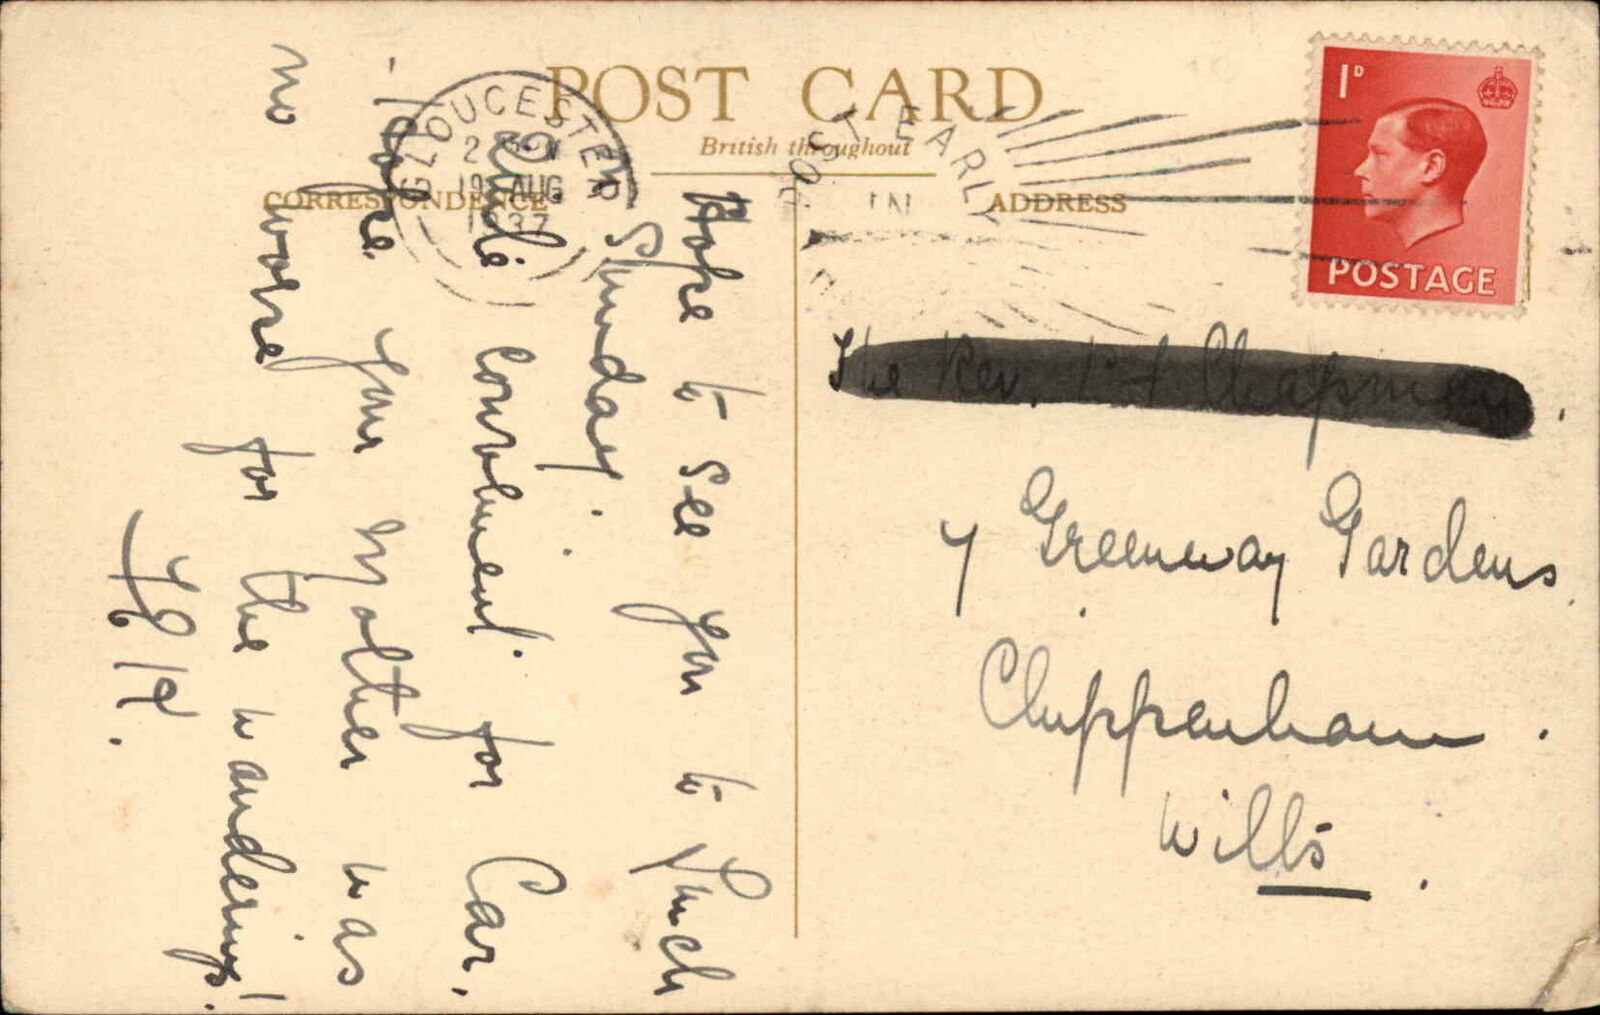 POST CARD
British throughout
CORRESPONDENCE
ADDRESS
GLOUCESTER
19 AUG
1937
POST EARLY
IN
1D
POSTAGE
Hope to see you to Lunch
Sunday.
Quite convenient for Car.
I hope your Mother was
no worse for the wanderings!
The Rev. Chapman.
7 Greenway Gardens
Chippenham.
Wilts.